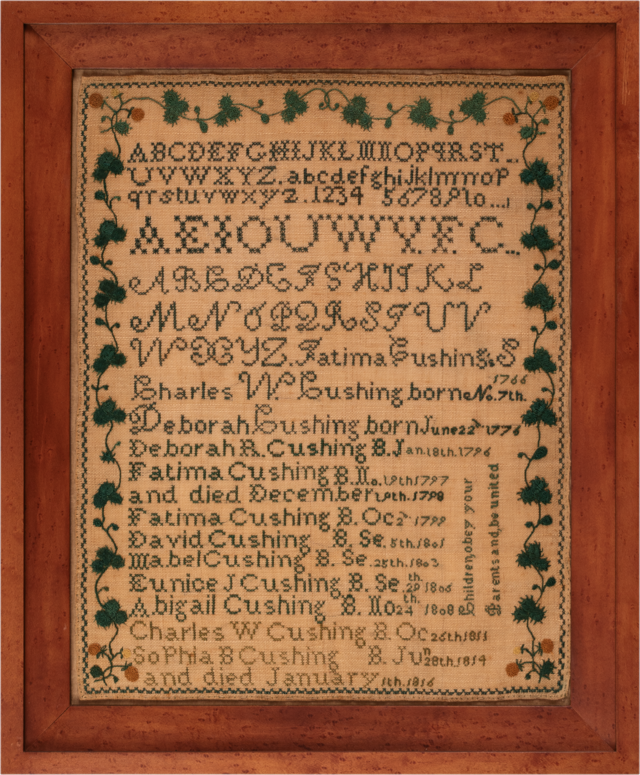 ABCDEFGHIJKLMNOPQRST..
UVWXYZ.abcdefghijklmnop
qrstuvwxyz.1234 5678910...
AEIOUWY.F.C..
ABCDEFGHIJKL
MNOPQRSTUV
WXYZ.Fatima Cushings S
Charles W. Cushing born No.7th. 1766
Deborah Cushing born June 22d 1776
Deborah R. Cushing B.Jan.18th.1796
Fatima Cushing B.No.19th.1797
and died December 19th.1798
Fatima Cushing B. Oc 2d 1799
David Cushing B. Se.5th.1801
Mabel Cushing B. Se.25th.1803
Eunice J Cushing B. Se 29th 1806
Abigail Cushing B. No 24th 1808
Charles W Cushing B. Oc 26th 1811
Sophia B Cushing B. Jun 28th.1814
and died January 5th.1816
Children,obey your
Parents and,be united